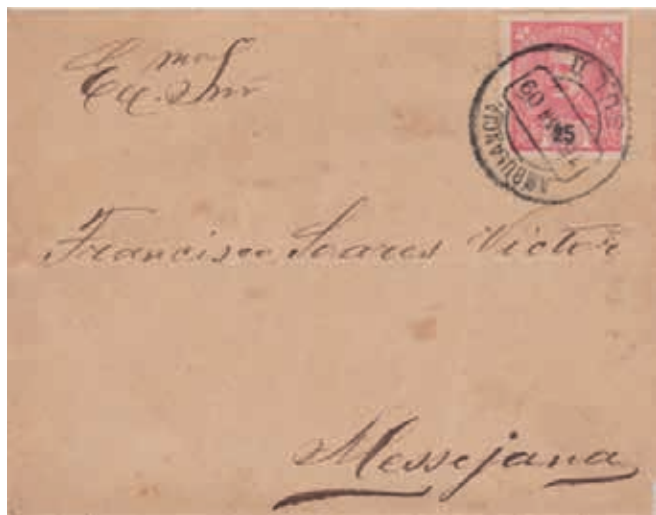 Exmo Snr
25
AMBULANCIA
SUL II
Francisco Soares Victor
Messejana